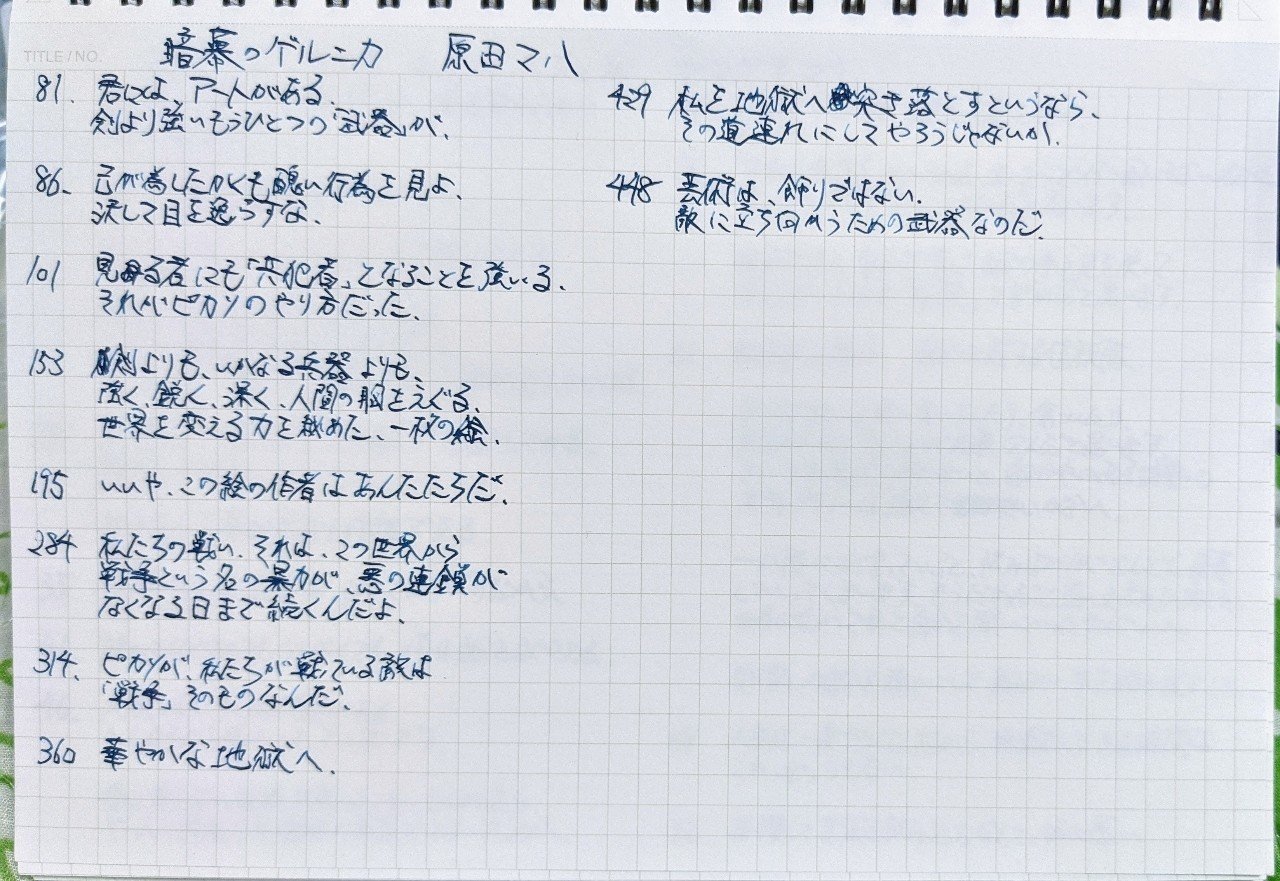 TITLE / NO.
暗幕のゲルニカ 原田マハ
81. 君には、アートがある。
剣より強いもうひとつの「武器」が。
86. 己が為したかくも醜い行為を見よ。
決して目を逸らすな。
101 見る者にも「共犯者」となることを強いる。
それがピカソのやり方だった。
153 剣よりも、いかなる兵器よりも、
強く、鋭く、深く、人間の胸をえぐる、
世界を変える力を秘めた、一枚の絵。
195 いいや、この絵の作者はあんたたちだ。
284 私たちの戦い、それは、この世界から
戦争という名の暴力が、悪の連鎖が
なくなる日まで続くんだよ。
314. ピカソが、私たちが戦っている敵は
「戦争」そのものなんだ。
360 華やかな地獄へ。
429 私を地獄へ突き落とすというなら、
その道連れにしてやろうじゃないか。
448 芸術は、飾りではない。
敵に立ち向かうための武器なのだ。